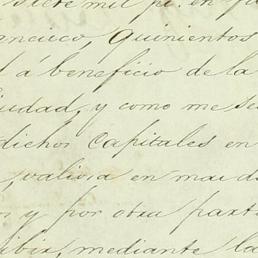 siete mil p.s en
ancisco, quinientos
á beneficio de la
iudad, y como me se
dichos capitales en
, valiosa en mas d
s y por otra part
ibir, mediante la